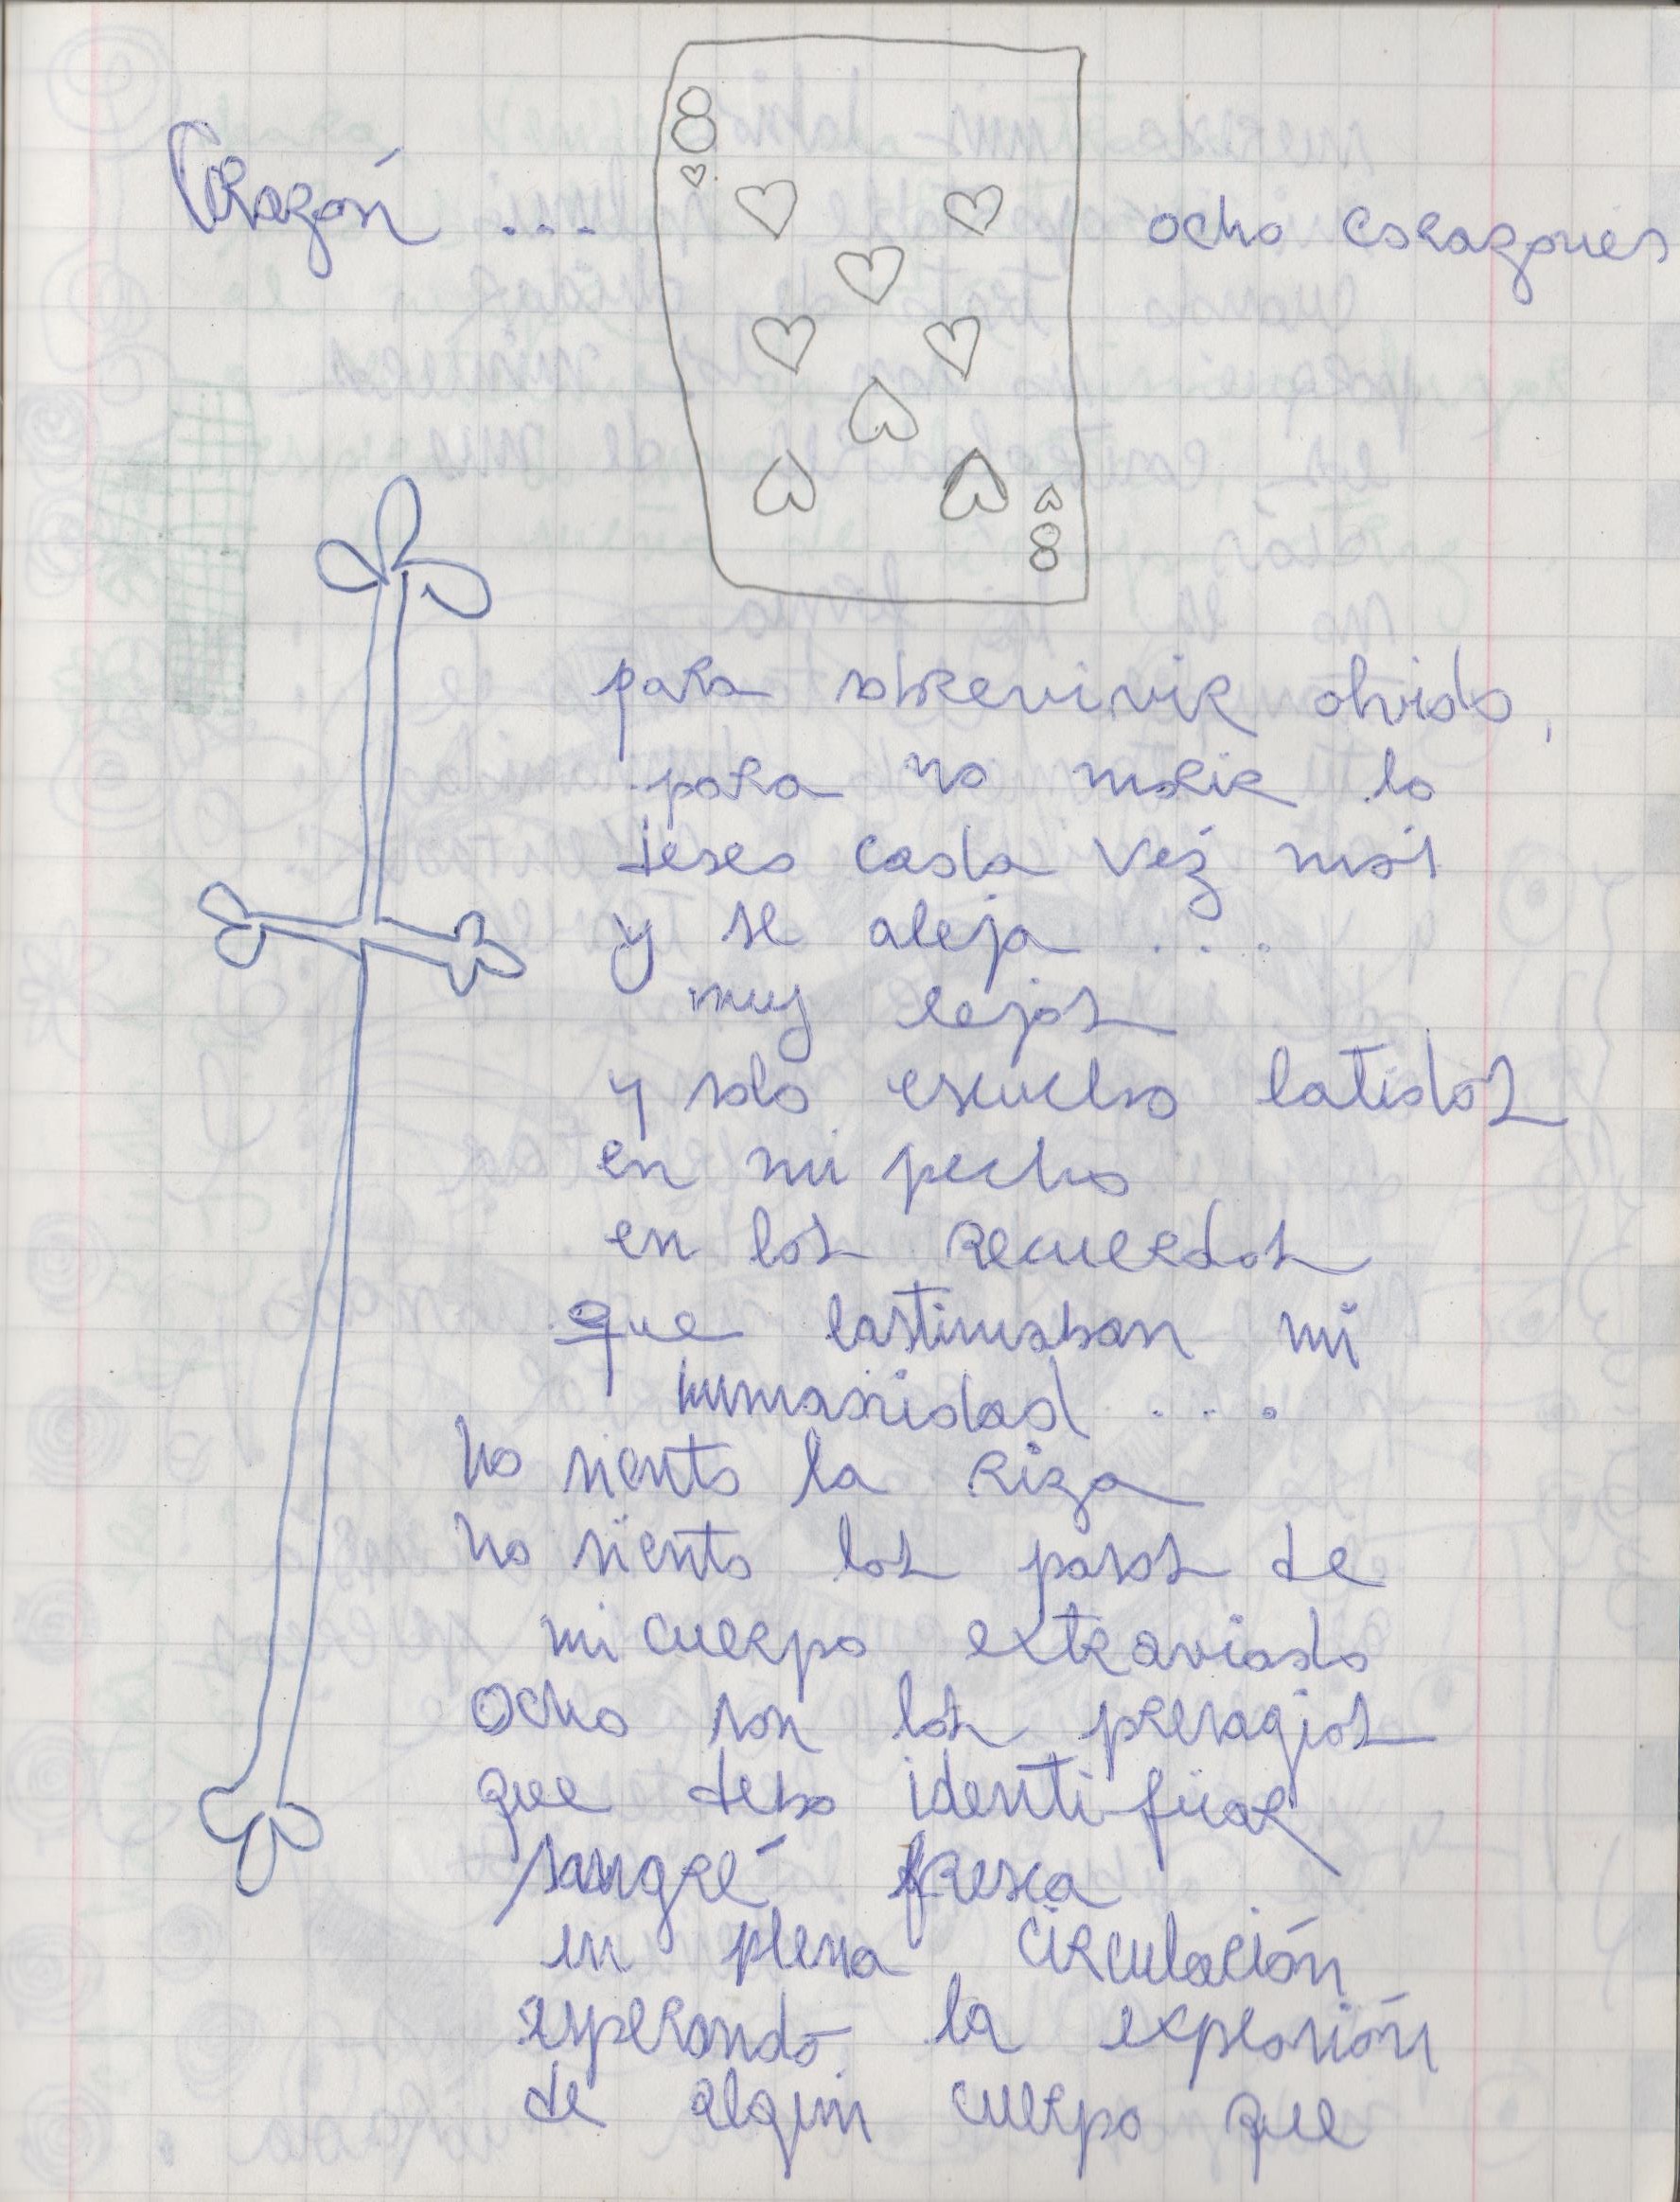 8
Corazón ... ocho corazones
8
para sobrevivir olvido,
para no morir lo
deseo cada vez más
y se aleja ...
muy lejos
y solo escucho latidos
en mi pecho
en los recuerdos
que lastimaban mi
humanidad ...
no siento la riza
no siento los pasos de
mi cuerpo extraviado
Ocho son los presagios
que debo identificar
sangre fresca
en plena circulación
esperando la explosión
de algún cuerpo que